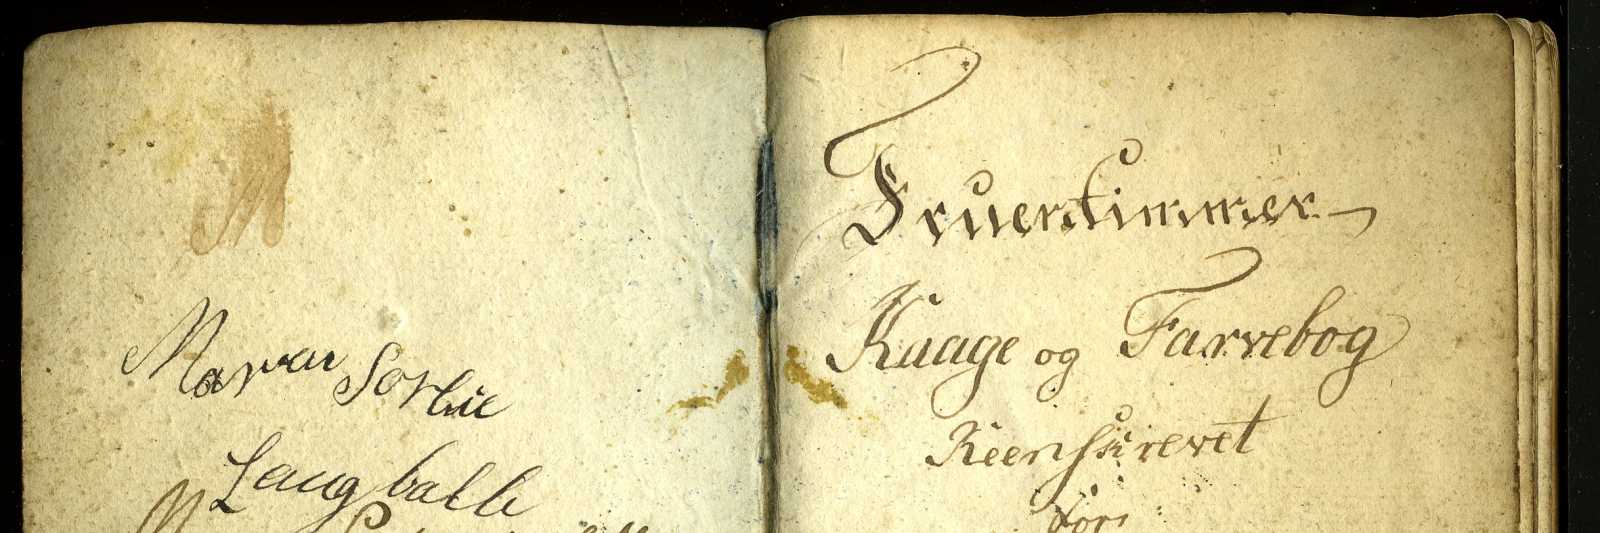 M
Maren Sofhie
Langballe
Fruentimmer
Kaage og Farvebog
Reenskrevet
for